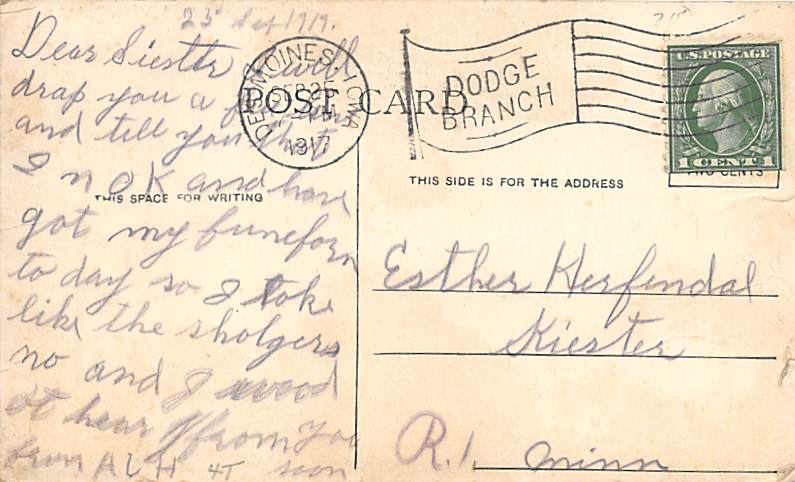 23 Sep 1917.
Dear Siester I will
drap you a
and till you that
I n OK and have
got my funeforn
to day so I loke
like the sholgers
no and I wood
hear from you
from ALH soon
POST CARD
THIS SPACE FOR WRITING
DES MOINES, IOWA
SEP
1917
DODGE
BRANCH
U.S. POSTAGE
1 CENT 1
TWO CENTS
THIS SIDE IS FOR THE ADDRESS
Esther Herfendal
Kiester
R.1. Minn